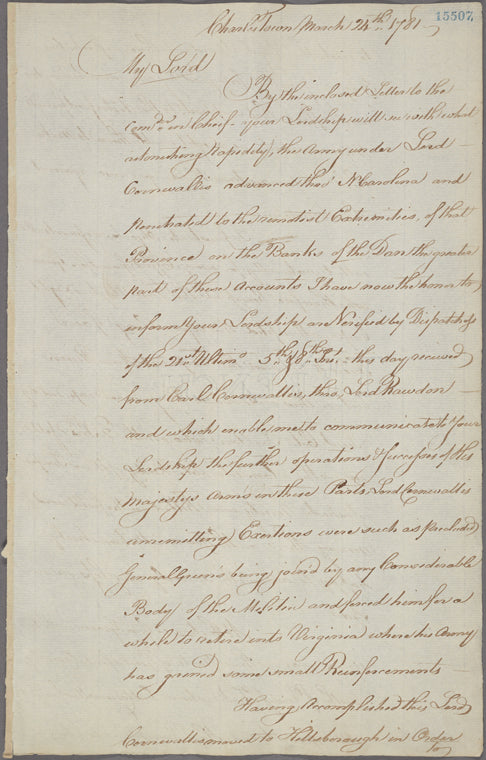 15507
Charles Town March 24th. 1781
My Lord
By the inclosed Letter to the
Comdr. in Chief - Your Lordship will see with what
astonishing Rapidity, the Army under Lord
Cornwallis advanced thro' N Carolina and
penetrated to the remotest Extremities, of that
Province on the Banks of the Dan the greater
part of these Accounts I have now the honor to
inform Your Lordship are Verified by Dispatches
of the 21st. Ultimo 5th. & 8th. Inst. this day received
from Earl Cornwallis, thro, Lord Rawdon
and which enable me to communicate to Your
Lordship the further operations & Successes of His
Majestys Arms in these Parts, Lord Cornwallis
unremitting Exertions were such as precluded
General Green's being join'd by any Considerable
Body of the Militia and forced him for a
while to retire into Virginia where his Army
has gained some small Reinforcements
Having Accomplished this Lord
Cornwallis moved to Hillsborough in Order
to